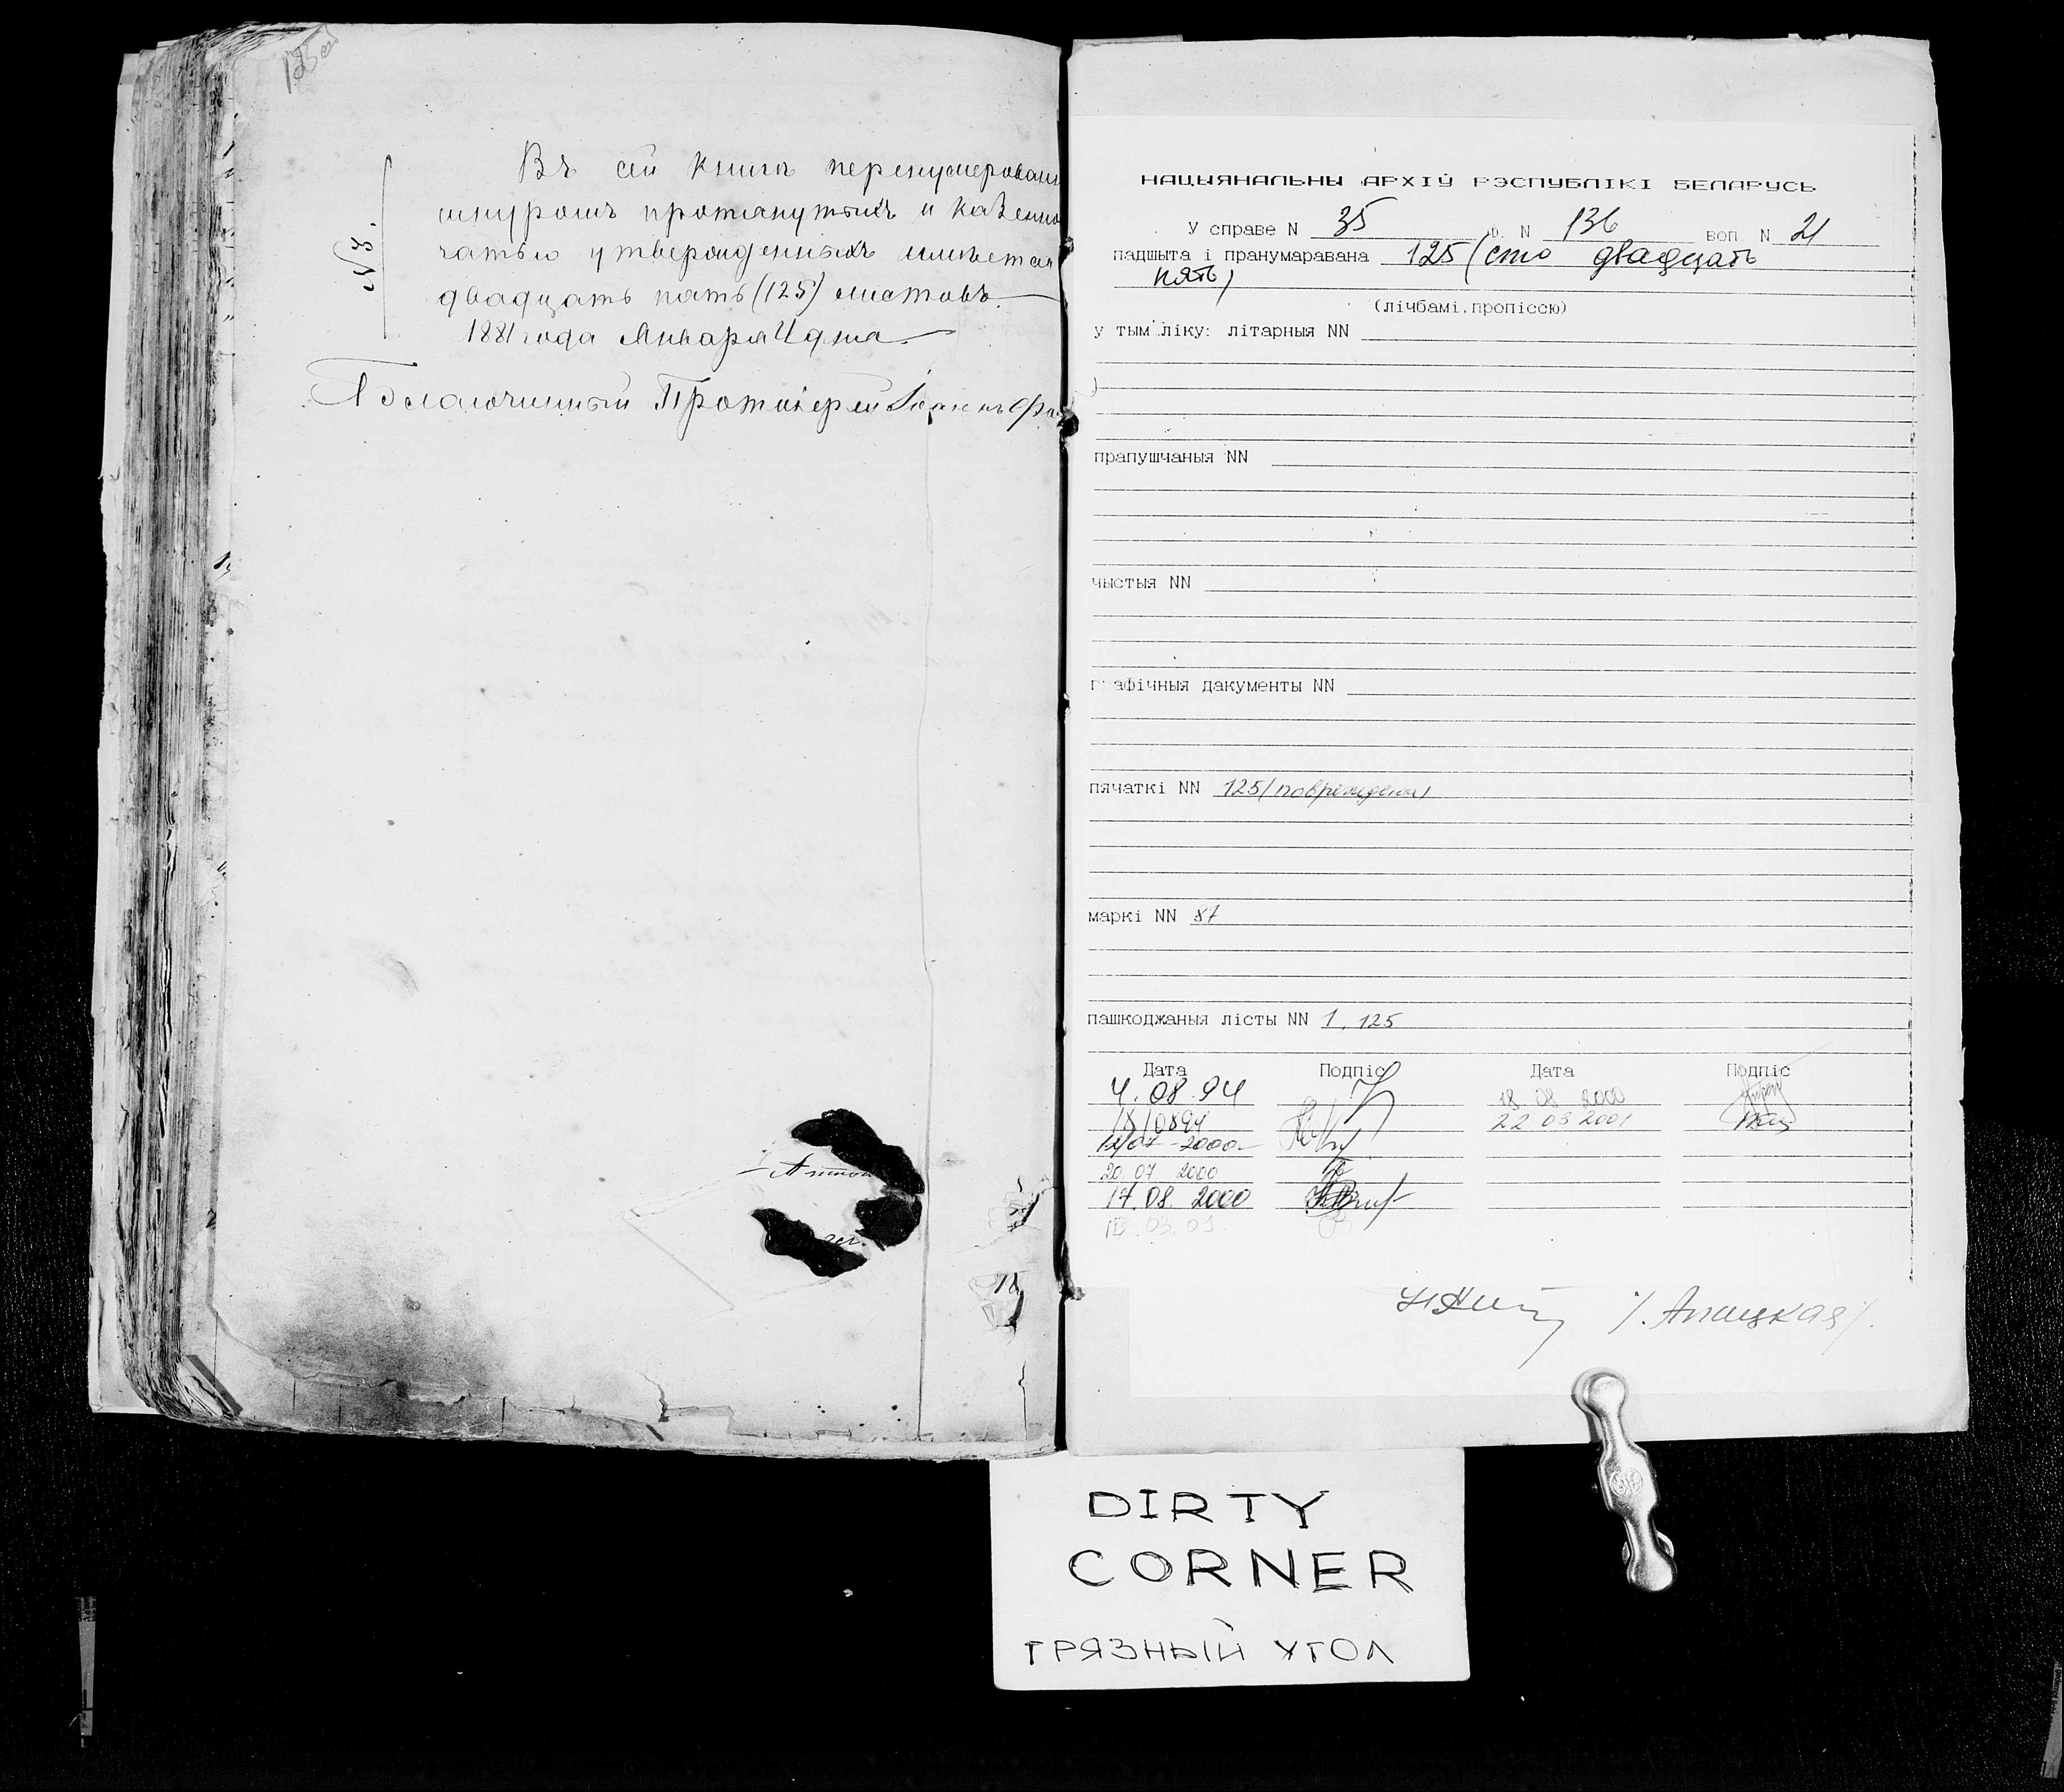 125 об
№ 3.
Въ сей книгѣ перенумерован
шнуромъ протянутыхъ и казенно
чатью утвержденныхъ имѣется
двадцать пять (125) листовъ.
1881 года Января 4 дня
Благочинный Протоіерей Іоаннъ
НАЦЫЯНАЛЬНЫ АРХІЎ РЭСПУБЛІКІ БЕЛАРУСЬ
У справе N 35 ф. N 136 воп. N 21
падшыта і пранумаравана 125 (сто двадцать
пять)
(лічбамі, пропіссю)
у тым ліку: літарныя NN
прапушчаныя NN
чыстыя NN
графічныя дакументы NN
пячаткі NN 125 (повреждена)
маркі NN 87
пашкоджаныя лісты NN 1, 125
Дата Подпіс Дата Подпіс
4.08.94 18 08 2000
18/0894 22 03 2001
12/07-2000
20 07 2000
17.08.2000
03.01.
DIRTY
CORNER
ГРЯЗНЫЙ УГОЛ